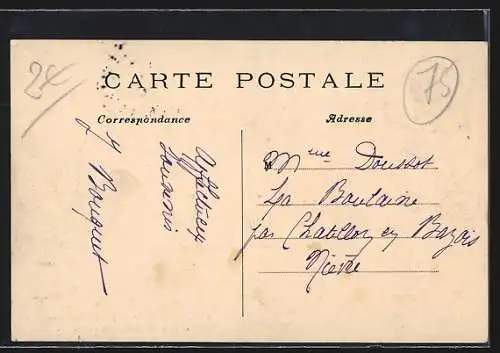 24
75
CARTE POSTALE
Correspondance
Adresse
Affectueux
souvenir
Y Bouquet
Mme Doussot
La Boulaine
par Chatillon en Bazois
Nièvre